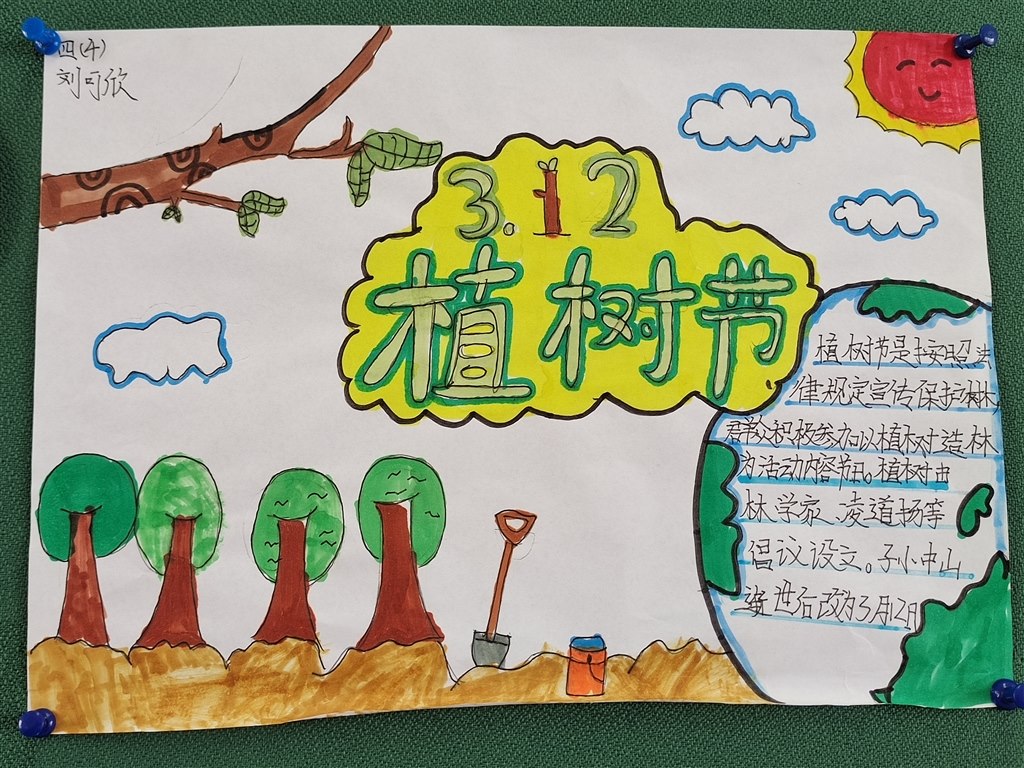 四(4)
刘可欣
3.12
植树节
植树节是按照法
律规定宣传保护林,
群众积极参加以植树造林
为活动内容节日。植树由
林学家、凌道扬等
倡议设立。子小中山
逝世后改为3月12日